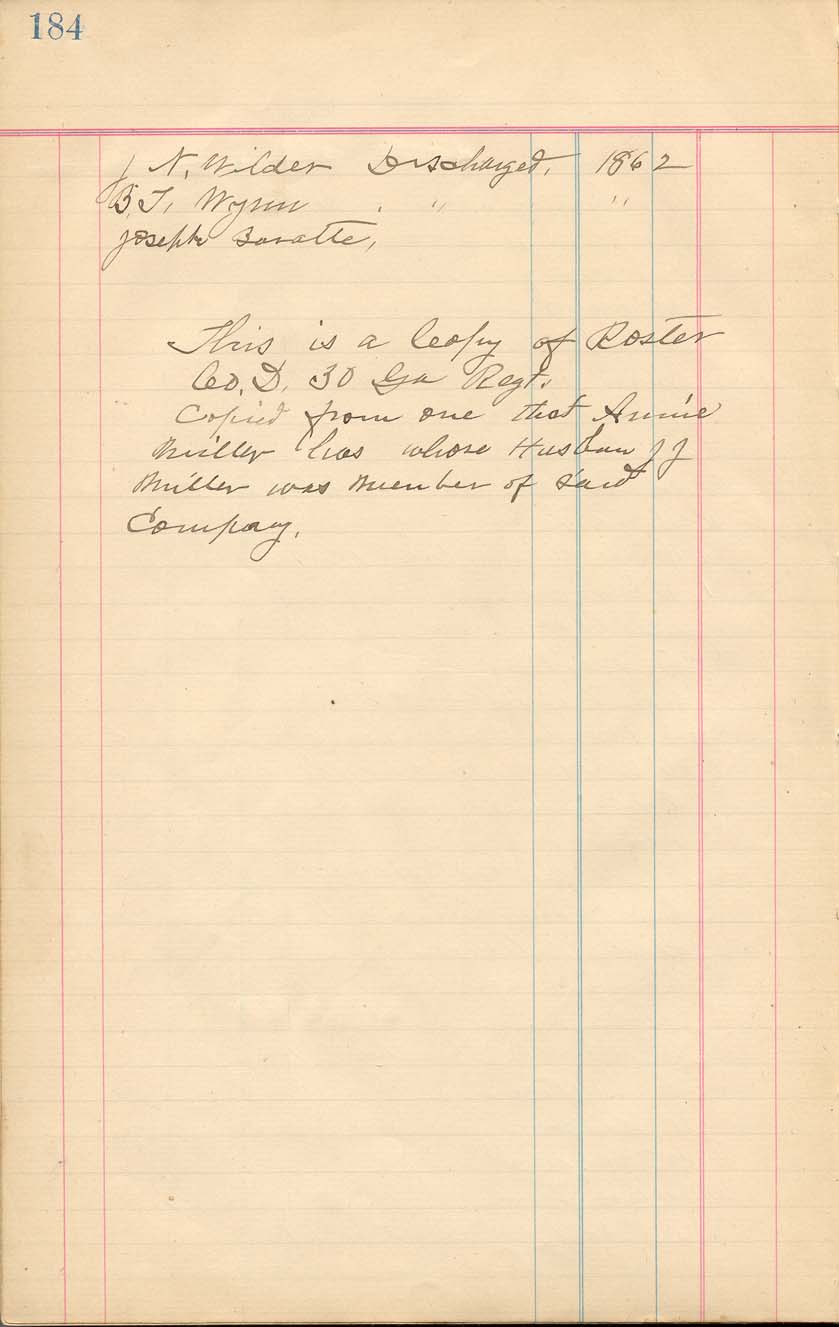 184
J N, Wilder Discharged, 1862
B, T, Wynn . " "
Joseph
This is a Copy of Roster
Co, D, 30 Ga Regt.
Copied from one that Annie
Miller has whose Husban J J
Miller was Member of Said
Company.